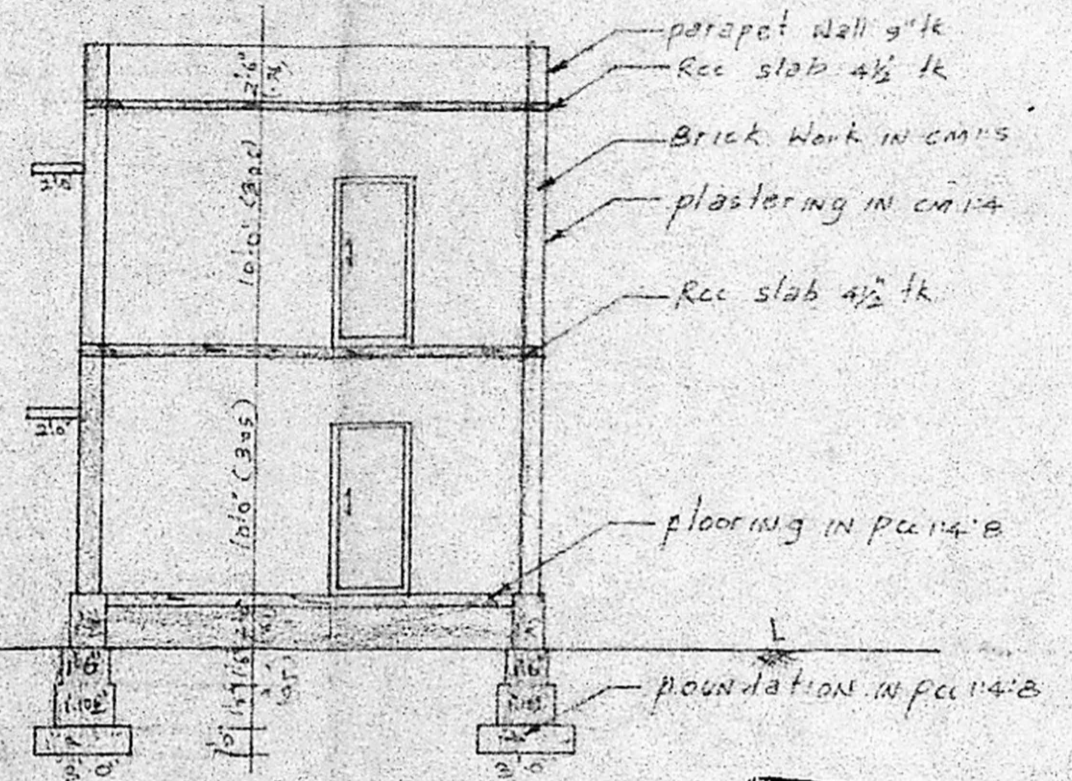 parapet wall 9" tk
Rcc slab 4½ tk
Brick Work IN CM1:5
plastering IN CM 1:4
Rcc slab 4½" tk
plooring IN pcc 1:4:8
L
poundation IN pcc 1:4:8
2'6"
10'0" (305)
10'0" (305)
2'0"
2'0"
1'6"
1'6"
1'0"